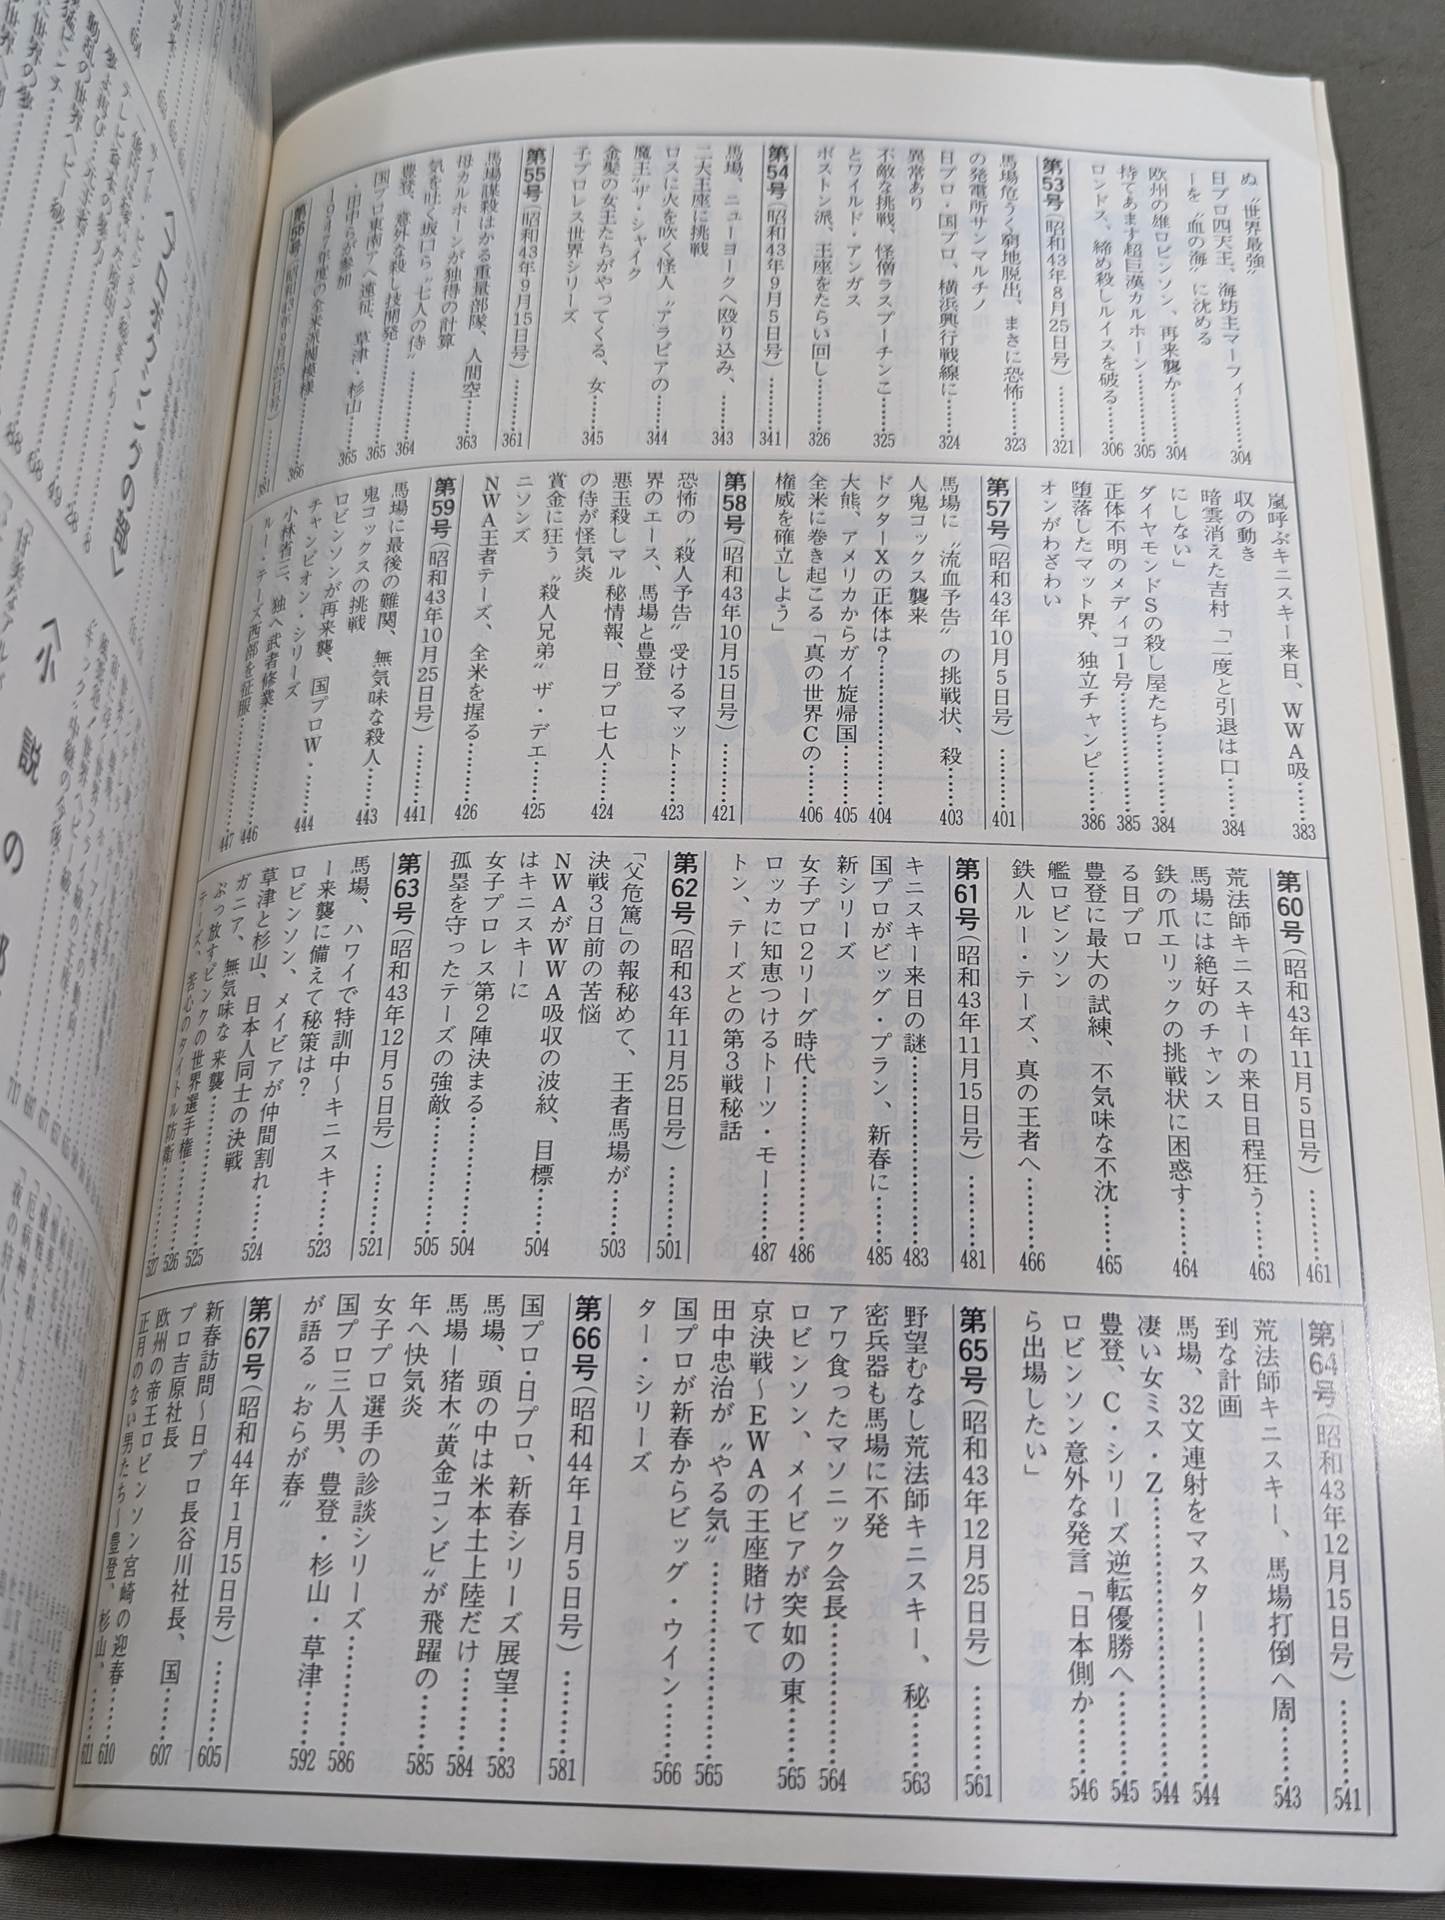 ぬ〝世界最強〟……304
日プロ四天王、海坊主マーフィ
ーを〝血の海〟に沈める……304
欧州の雄ロビンソン、再来襲か……304
持てあます超巨漢カルホーン……305
ロンドス、締め殺しルイスを破る……306
第53号（昭和43年8月25日号）……321
馬場危うく窮地脱出、まさに恐怖
の発電所サンマルチノ……323
日プロ・国プロ、横浜興行戦線に
異常あり……324
不敵な挑戦、怪僧ラスプーチンこ
とワイルド・アンガス……325
ボストン派、王座をたらい回し……326
第54号（昭和43年9月5日号）……341
馬場、ニューヨークへ殴り込み、
二大王座に挑戦……343
ロスに火を吹く怪人〝アラビアの
魔王〟ザ・シャイク……344
金髪の女王たちがやってくる、女
子プロレス世界シリーズ……345
第55号（昭和43年9月15日号）……361
馬場謀殺はかる重量部隊、人間空
母カルホーンが独得の計算……363
気を吐く坂口ら〝七人の侍〟
豊登、意外な殺し技開発……364
国プロ東南アへ遠征、草津・杉山
・田中らが参加……365
1947年度の全米派閥模様……366
第56号（昭和43年9月25日号）……381
嵐呼ぶキニスキー来日、WWA吸
収の動き……383
暗雲消えた吉村「二度と引退は口
にしない」……384
ダイヤモンドSの殺し屋たち……384
正体不明のメディコ1号……385
堕落したマット界、独立チャンピ
オンがわざわい……386
第57号（昭和43年10月5日号）……401
馬場に〝流血予告〟の挑戦状、殺
人鬼コックス襲来……403
ドクターXの正体は?……404
大熊、アメリカからガイ旋帰国……405
全米に巻き起こる「真の世界Cの
権威を確立しよう」……406
第58号（昭和43年10月15日号）……421
恐怖の〝殺人予告〟受けるマット
界のエース、馬場と豊登……423
悪玉殺しマル秘情報、日プロ七人
の侍が怪気炎……424
賞金に狂う〝殺人兄弟〟ザ・デエ
ニソンズ……425
NWA王者テーズ、全米を握る……426
第59号（昭和43年10月25日号）……441
馬場に最後の難関、無気味な殺人
鬼コックスの挑戦……443
ロビンソンが再来襲、国プロW・
チャンピオン・シリーズ……444
小林省三、独へ武者修業……446
ルー・テーズ西部を征服……447
第60号（昭和43年11月5日号）……461
荒法師キニスキーの来日日程狂う
馬場には絶好のチャンス……463
鉄の爪エリックの挑戦状に困惑す
る日プロ……464
豊登に最大の試練、不気味な不沈
艦ロビンソン……465
鉄人ルー・テーズ、真の王者へ……466
第61号（昭和43年11月15日号）……481
キニスキー来日の謎……483
国プロがビッグ・プラン、新春に
新シリーズ……485
女子プロ2リーグ時代……486
ロッカに知恵つけるトーツ・モー
トン、テーズとの第3戦秘話……487
第62号（昭和43年11月25日号）……501
「父危篤」の報秘めて、王者馬場が
決戦3日前の苦悩……503
NWAがWWA吸収の波紋、目標
はキニスキーに……504
女子プロレス第2陣決まる……504
孤塁を守ったテーズの強敵……505
第63号（昭和43年12月5日号）……521
馬場、ハワイで特訓中〜キニスキ
ー来襲に備えて秘策は?……523
ロビンソン、メイビアが仲間割れ
草津と杉山、日本人同士の決戦……524
ガニア、無気味な来襲……525
ぶっ放すピンクの世界選手権……526
テーズ、苦心のタイトル防衛……527
第64号（昭和43年12月15日号）……541
荒法師キニスキー、馬場打倒へ周
到な計画……543
馬場、32文連射をマスター……544
凄い女ミス・Z……544
豊登、C・シリーズ逆転優勝へ……545
ロビンソン意外な発言「日本側か
ら出場したい」……546
第65号（昭和43年12月25日号）……561
野望むなし荒法師キニスキー、秘
密兵器も馬場に不発……563
アワ食ったマソニック会長……564
ロビンソン、メイビアが突如の東
京決戦〜EWAの王座賭けて……565
田中忠治が〝やる気〟……565
国プロが新春からビッグ・ウイン
ター・シリーズ……566
第66号（昭和44年1月5日号）……581
国プロ・日プロ、新春シリーズ展望……583
馬場、頭の中は米本土上陸だけ……584
馬場―猪木〝黄金コンビ〟が飛躍の
年へ快気炎……585
女子プロ選手の診談シリーズ……586
国プロ三人男、豊登・杉山・草津
が語る〝おらが春〟……592
第67号（昭和44年1月15日号）……605
新春訪問〜日プロ長谷川社長、国
プロ吉原社長……607
欧州の帝王ロビンソン宮崎の迎春……610
正月のない男たち〜豊登、杉山、……611
小説の部